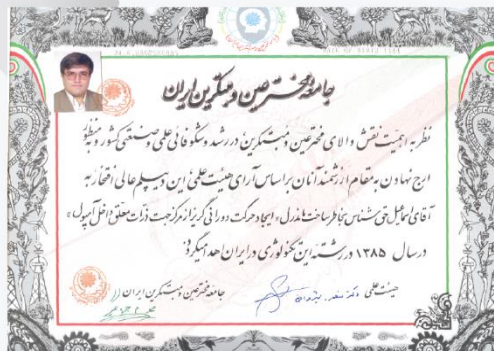 جامعه مخترعین و مبتکرین ایران
نظر به اهمیت نقش والای مخترعین و مبتکرین در رشد و شکوفائی علمی و صنعتی کشور و به منظور
ارج نهادن به مقام ارزشمند آنان براساس آرای هیئت علمی این دیپلم عالی افتخار به
آقای اسماعیل حق شناس بخاطر ساخت مدل « ایجاد حرکت دورانی گریز از مرکز جهت ذرات معلق داخل آمپول »
در سال ۱۳۸۵ در رشته این تکنولوژی در ایران اهدا میگردد.
هیئت علمی دکتر
جامعه مخترعین و مبتکرین ایران